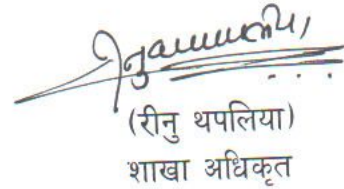 (रीनु थपलिया)
शाखा अधिकृत